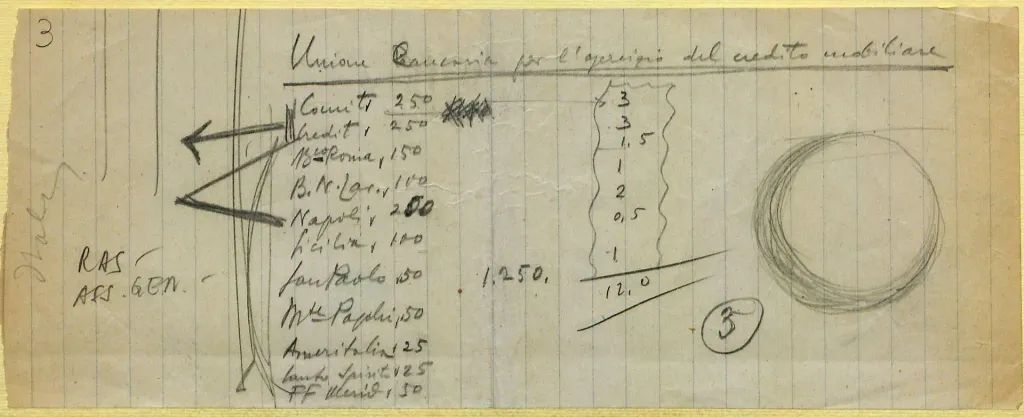 3
Unione Bancaria per l'esercizio del credito mobiliare
Comit, 250 3
Credit, 250 3
Bco Roma, 150 1,5
B.N.Lav., 100 1
Napoli, 200 2
Sicilia, 100 0,5
San Paolo, 50 1.250. 1
12,0
Mte Paschi, 50
Ameritalia, 25
Santo Spirito, 25
FF Merid, 50
RAS -
ASS. GEN. -
Italy
5